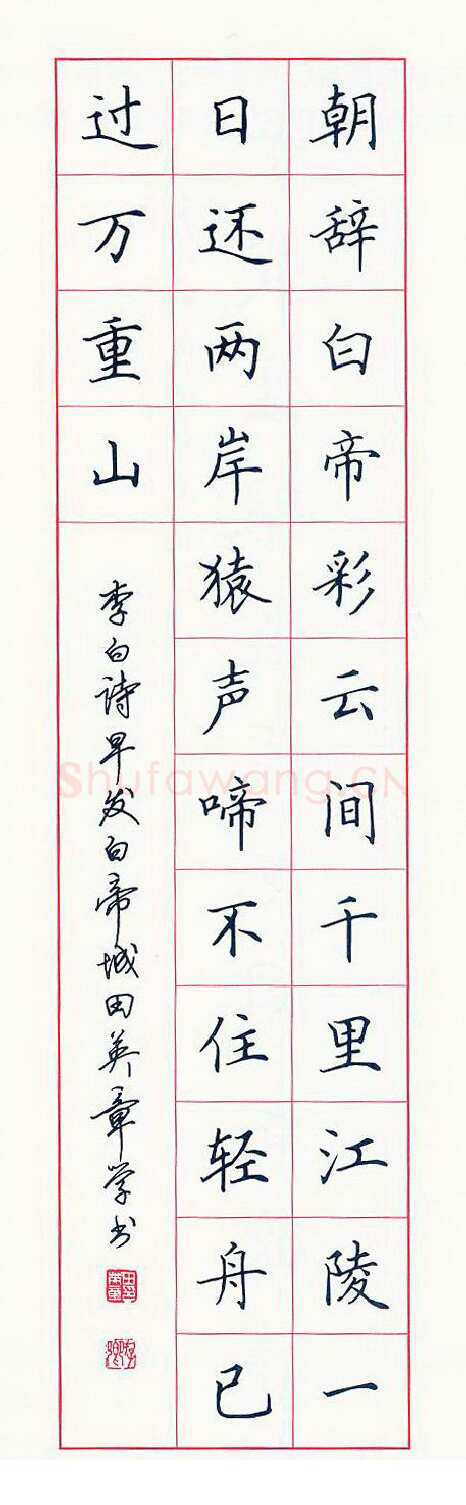 朝辞白帝彩云间千里江陵一
日还两岸猿声啼不住轻舟已
过万重山
李白诗早发白帝城田英章学书
Shufawang.CN